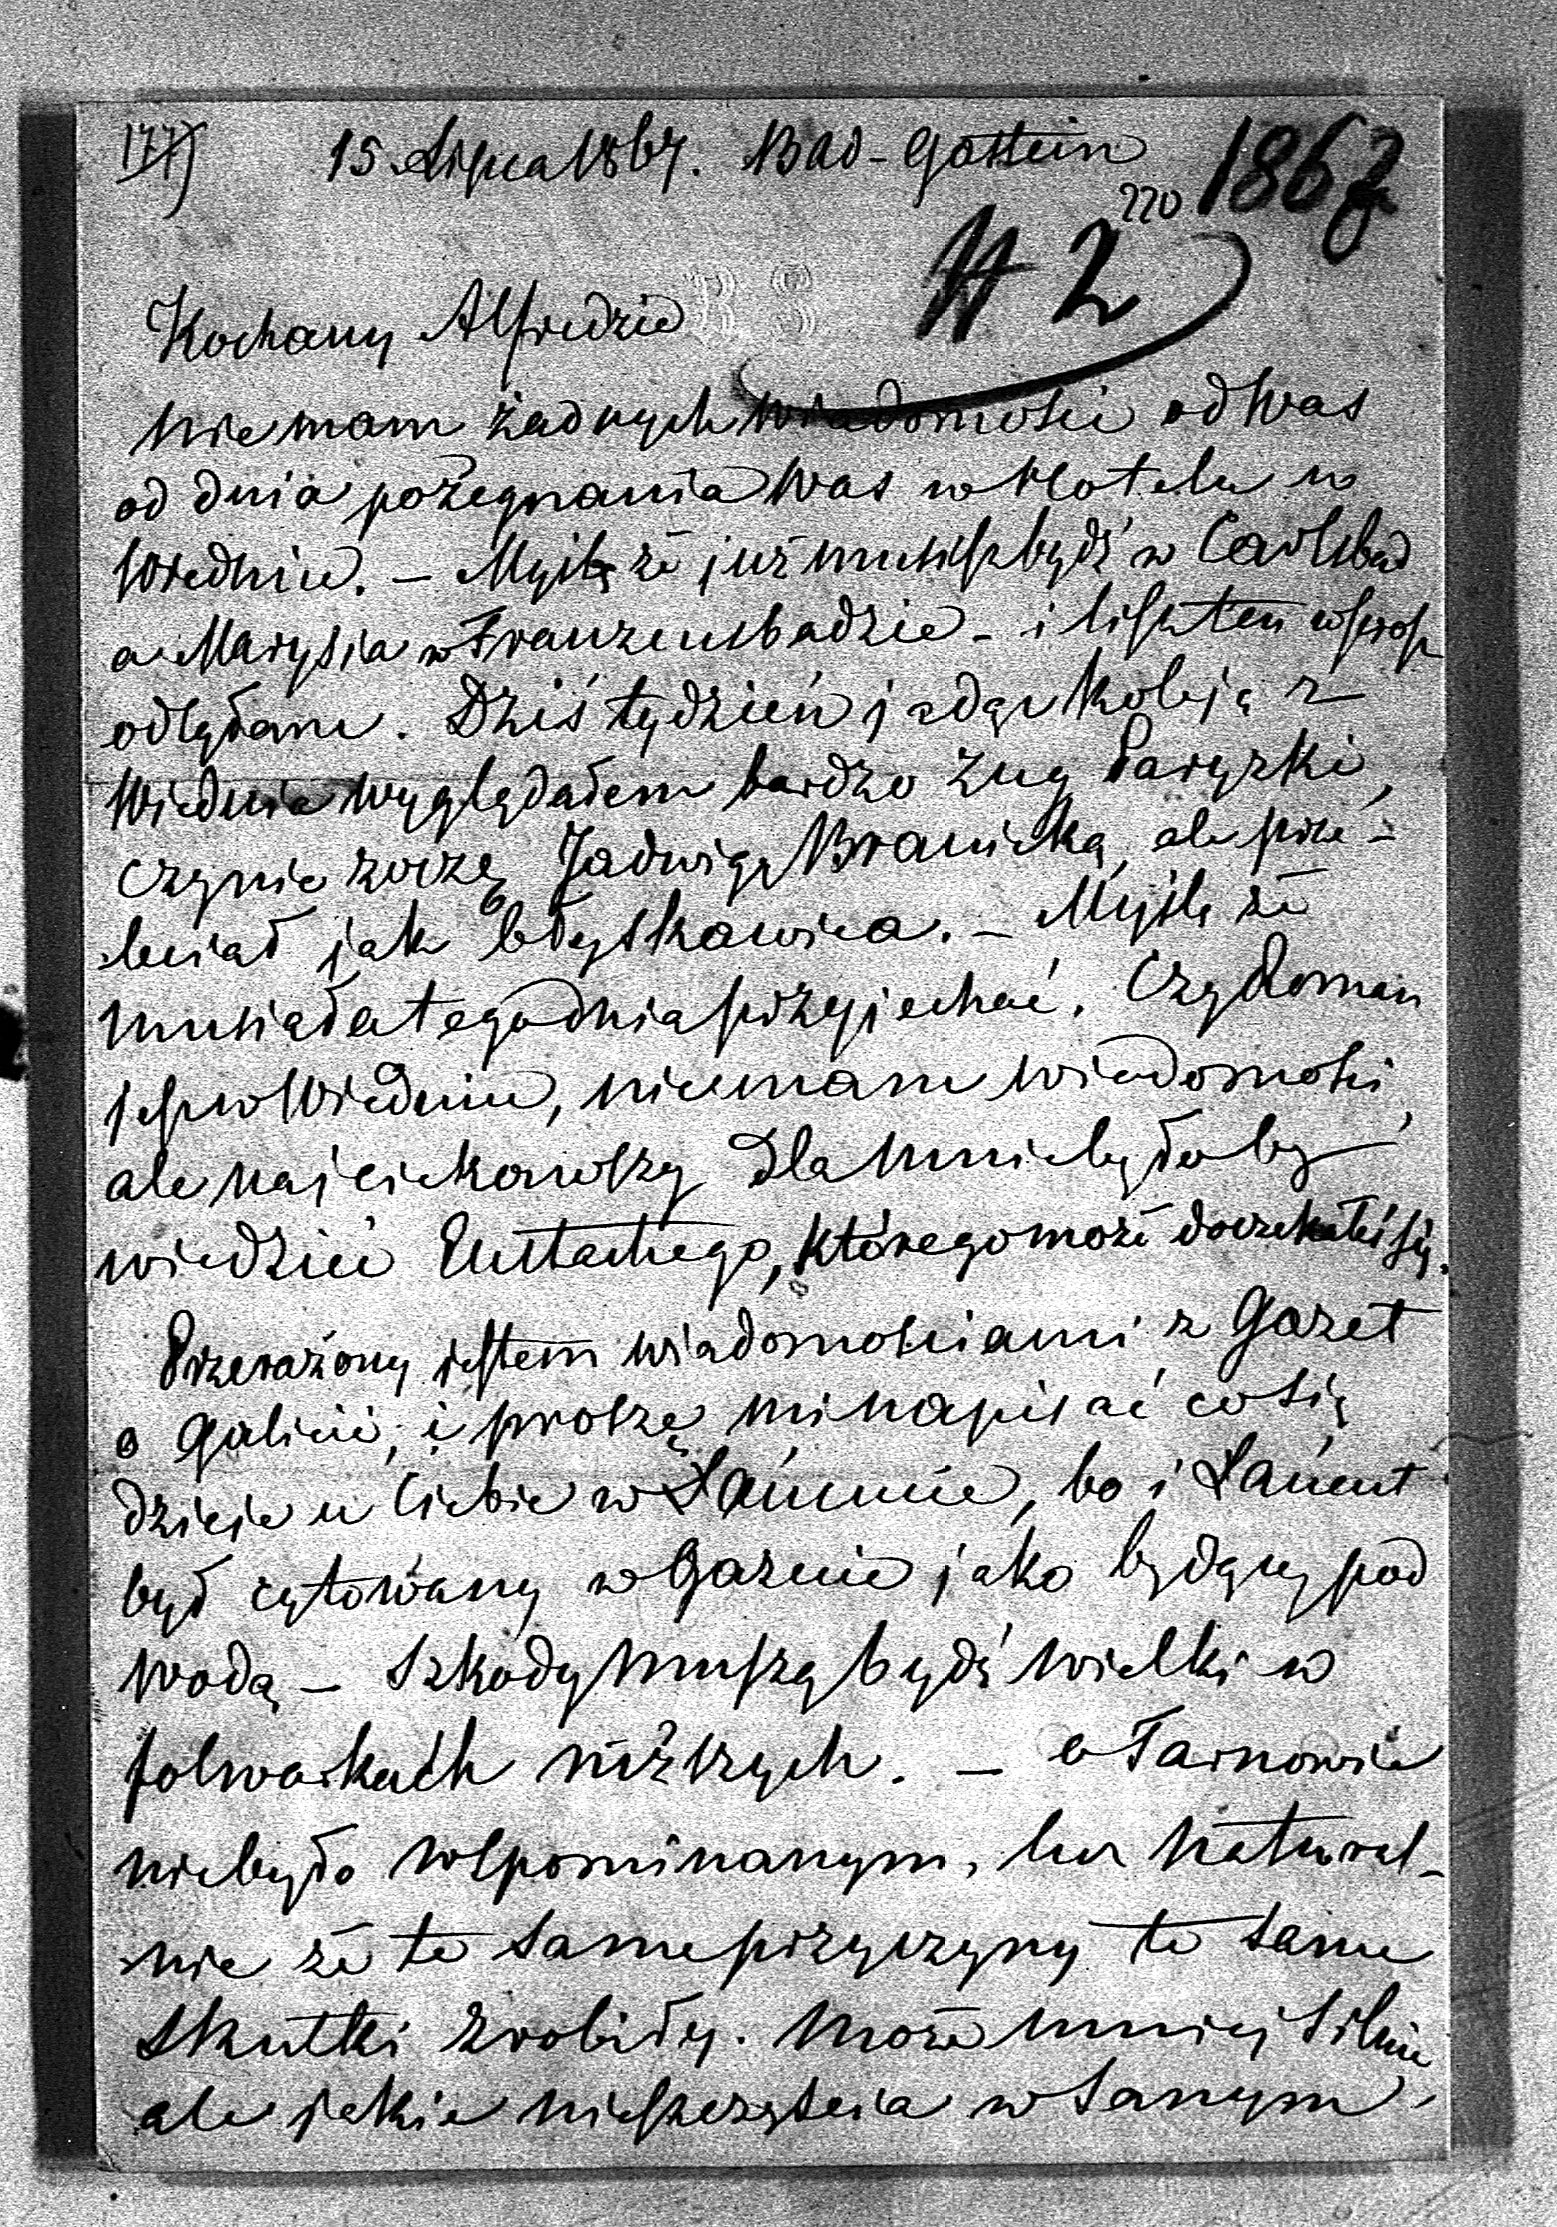 177)
15 Lipca 1867. Bad-Gastein
1867
220
# 2
Kochany Alfredzie
nie mam żadnych wiadomości od Was
od dnia pożegnania Was w Hotelu w
Wiedniu. – Myślę że już musisz bydź w Carlsbad
a Marysia w Franzensbadzie – i list ten wprost
odsyłam. Dziś tydzień jadąc koleją z
Wiednia wyglądałem bardzo zug Paryzki,
czy nie zoczę Jadwigę Branicką, ale prze-
leciał jak błyskawica. – Myślę że
musiała tego dnia przyjechać. Czy Roman
jest w Wiedniu, nie mam wiadomości,
ale najciekawszy dla mnie byłoby
wiedzieć Eustachego, którego może doczekałeś się.
Przerażony jestem wiadomościami z Gazet
o Galicii, i proszę mi napisać co się
dzieje u Ciebie w Łańcucie, bo i Łańcut
był cytowany w Gazecie jako będący pod
wodą – Szkody muszą bydź wielki w
folwarkach niższych. – o Tarnowie
nie było wspominanym, lecz natural-
nie że te same przyczyny te same
skutki zrobiły. Może mniej silnie
ale jakie nieszczęścia w samym